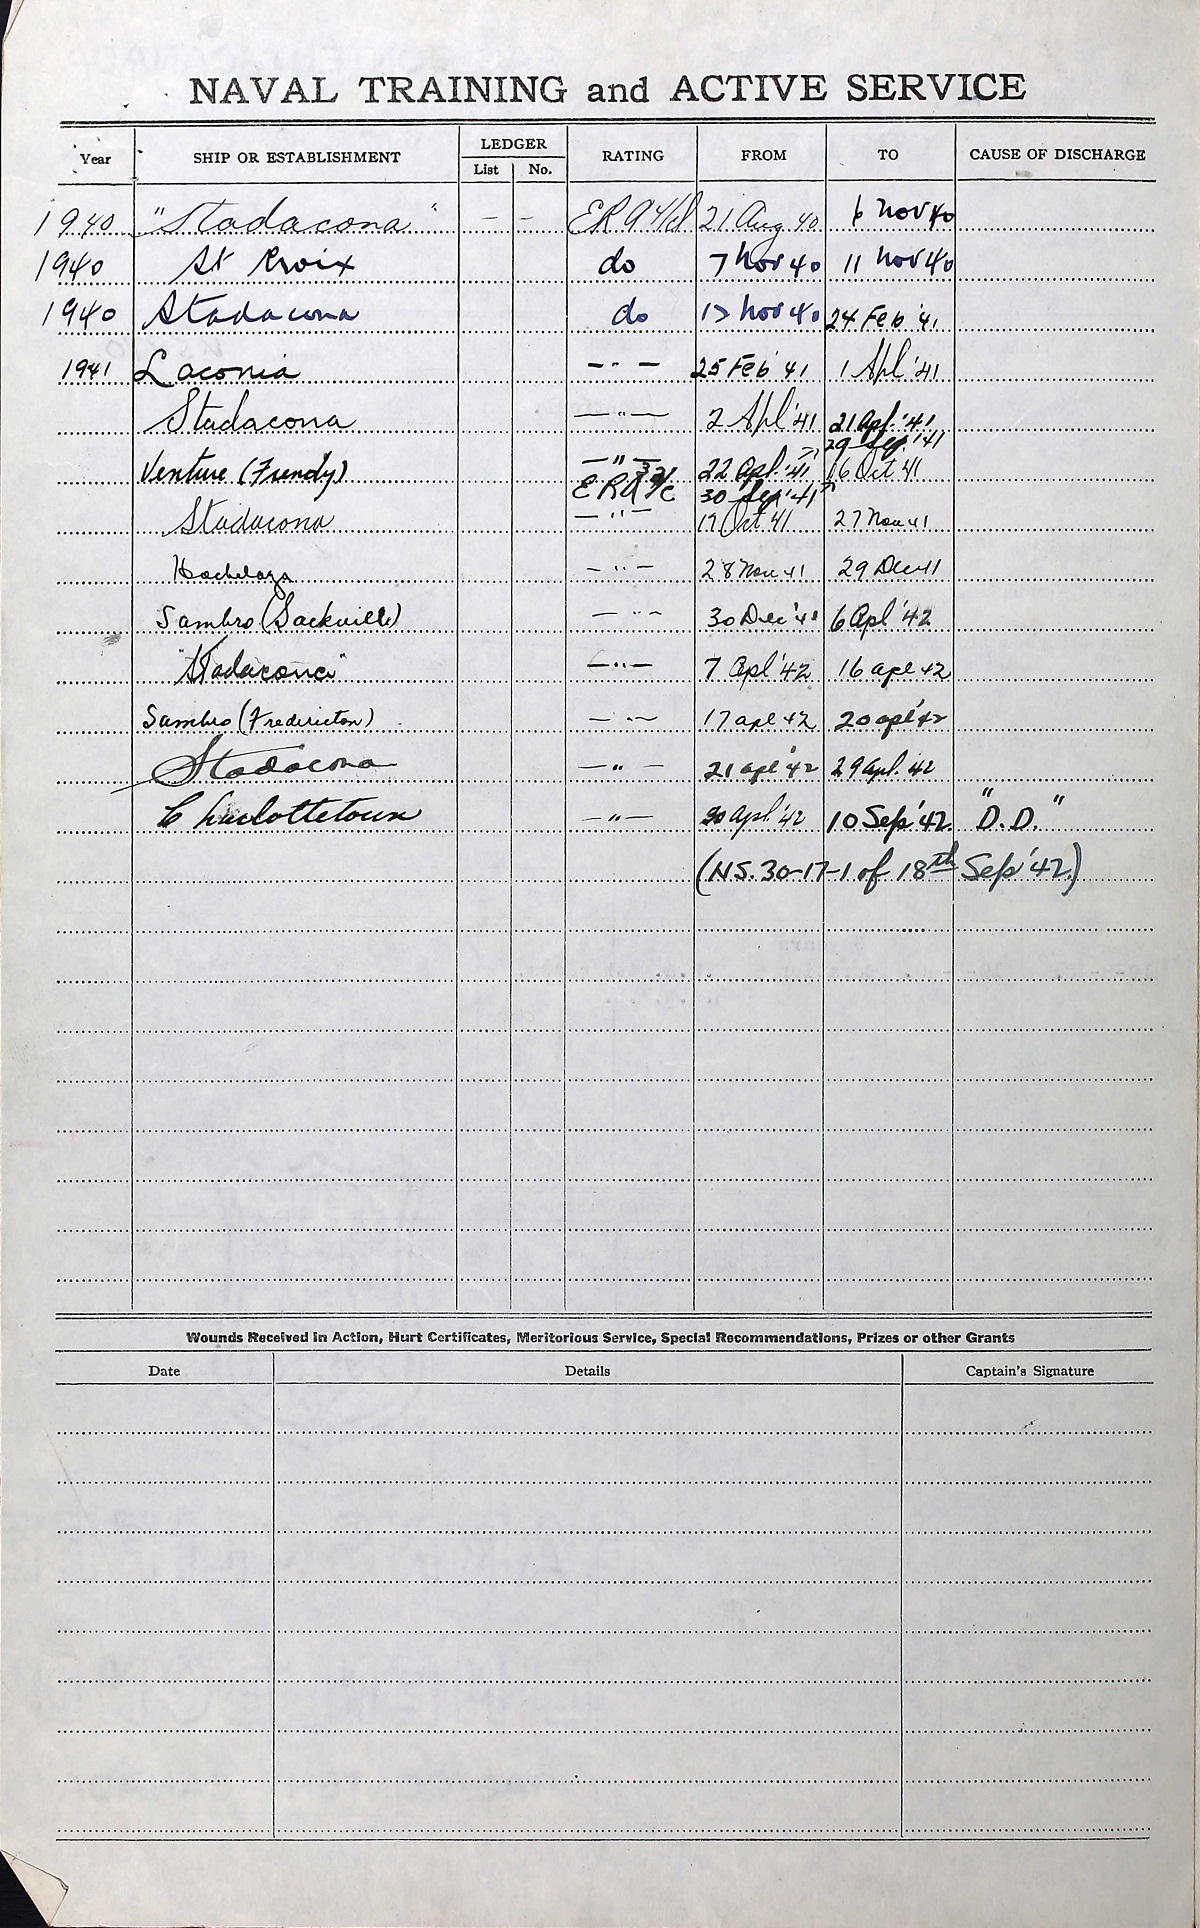 NAVAL TRAINING and ACTIVE SERVICE
Year SHIP OR ESTABLISHMENT LEDGER List No. RATING FROM TO CAUSE OF DISCHARGE
1940 "Stadacona" — — ERA 4/cl 21 Aug 40 6 Nov 40
1940 St Croix do 7 Nov 40 11 Nov 40
1940 Stadacona do 12 Nov 40 24 Feb '41
1941 Laconia — " — 25 Feb '41 1 Apl '41
Stadacona — " — 2 Apl '41 21 Apl. '41
29 Sep. '41
Venture (Fundy) — " — 22 Apl. '41 16 Oct 41
ERA 3/c 30 Sep '41
Stadacona — " — 17 Oct 41 27 Nov 41
Hochelaga — " — 28 Nov 41 29 Dec 41
Sambro (Sackville) — " — 30 Dec '41 6 Apl '42
"Stadacona" — " — 7 Apl '42 16 apl 42
Sambro (Fredericton) — " — 17 apl 42 20 apl '42
Stadacona — " — 21 apl '42 29 apl. 42
Charlottetown — " — 30 Apl '42 10 Sep '42. "D.D."
(N.S. 30-17-1 of 18th Sep '42.)
Wounds Received in Action, Hurt Certificates, Meritorious Service, Special Recommendations, Prizes or other Grants
Date Details Captain's Signature